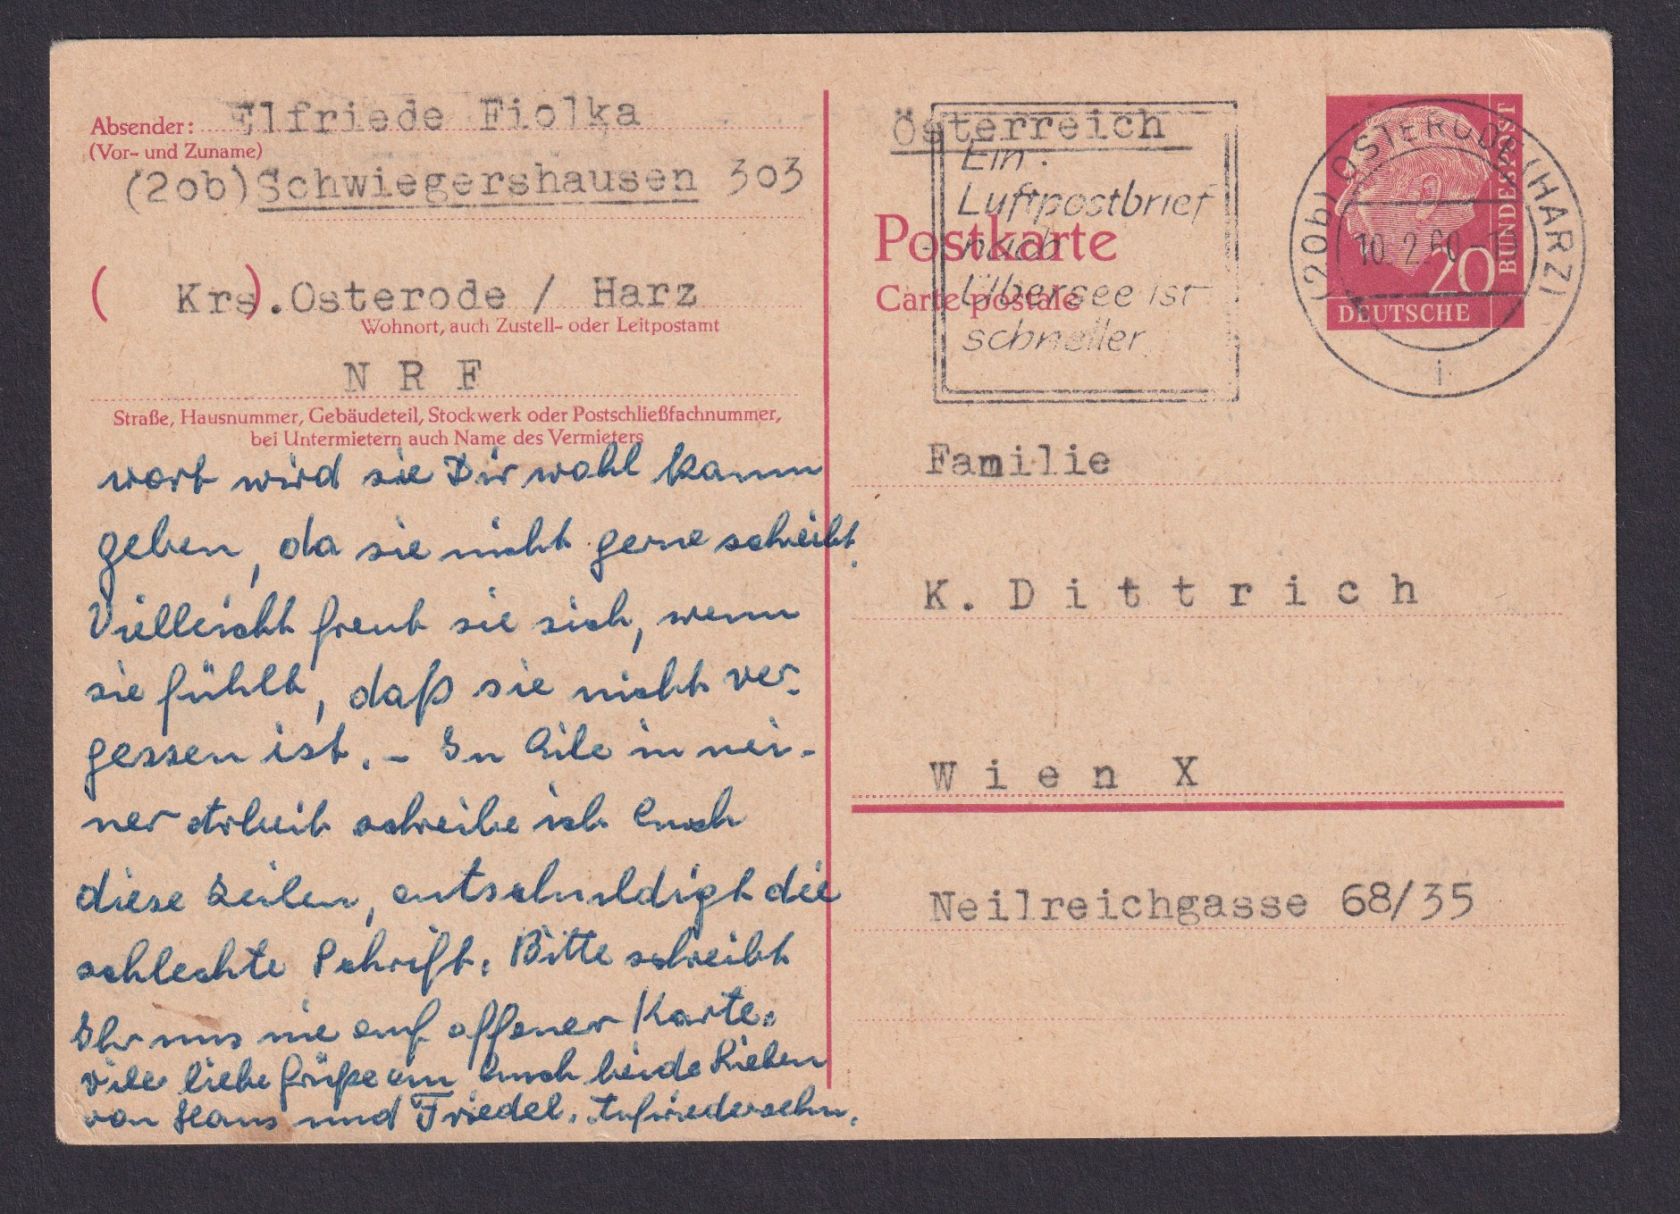 Absender: Elfriede Fiolka
(Vor- und Zuname)
(2ob) Schwiegershausen 3o3
( Krs). Osterode / Harz
Wohnort, auch Zustell- oder Leitpostamt
N R F
Straße, Hausnummer, Gebäudeteil, Stockwerk oder Postschließfachnummer,
bei Untermietern auch Name des Vermieters
wort wird sie Dir wohl kaum
geben, da sie nicht gerne schreibt.
Vielleicht freut sie sich, wenn
sie fühlt, daß sie nicht ver-
gessen ist. – In Eile in mei-
ner Arbeit schreibe ich Euch
diese Zeilen, entschuldigt die
schlechte Schrift. Bitte schreibt
Ihr uns nie auf offener Karte.
Viele liebe Grüße an Euch beide Lieben
von Hans und Friedel. Aufwiedersehn.
Österreich
Ein
Luftpostbrief
nach
Übersee ist
schneller
Postkarte
Carte postale
(20b) OSTERODE (HARZ)
10.2.60
i
20
DEUTSCHE
BUNDESPOST
Familie
K. D i t t r i c h
W i e n X
Neilreichgasse 68/35